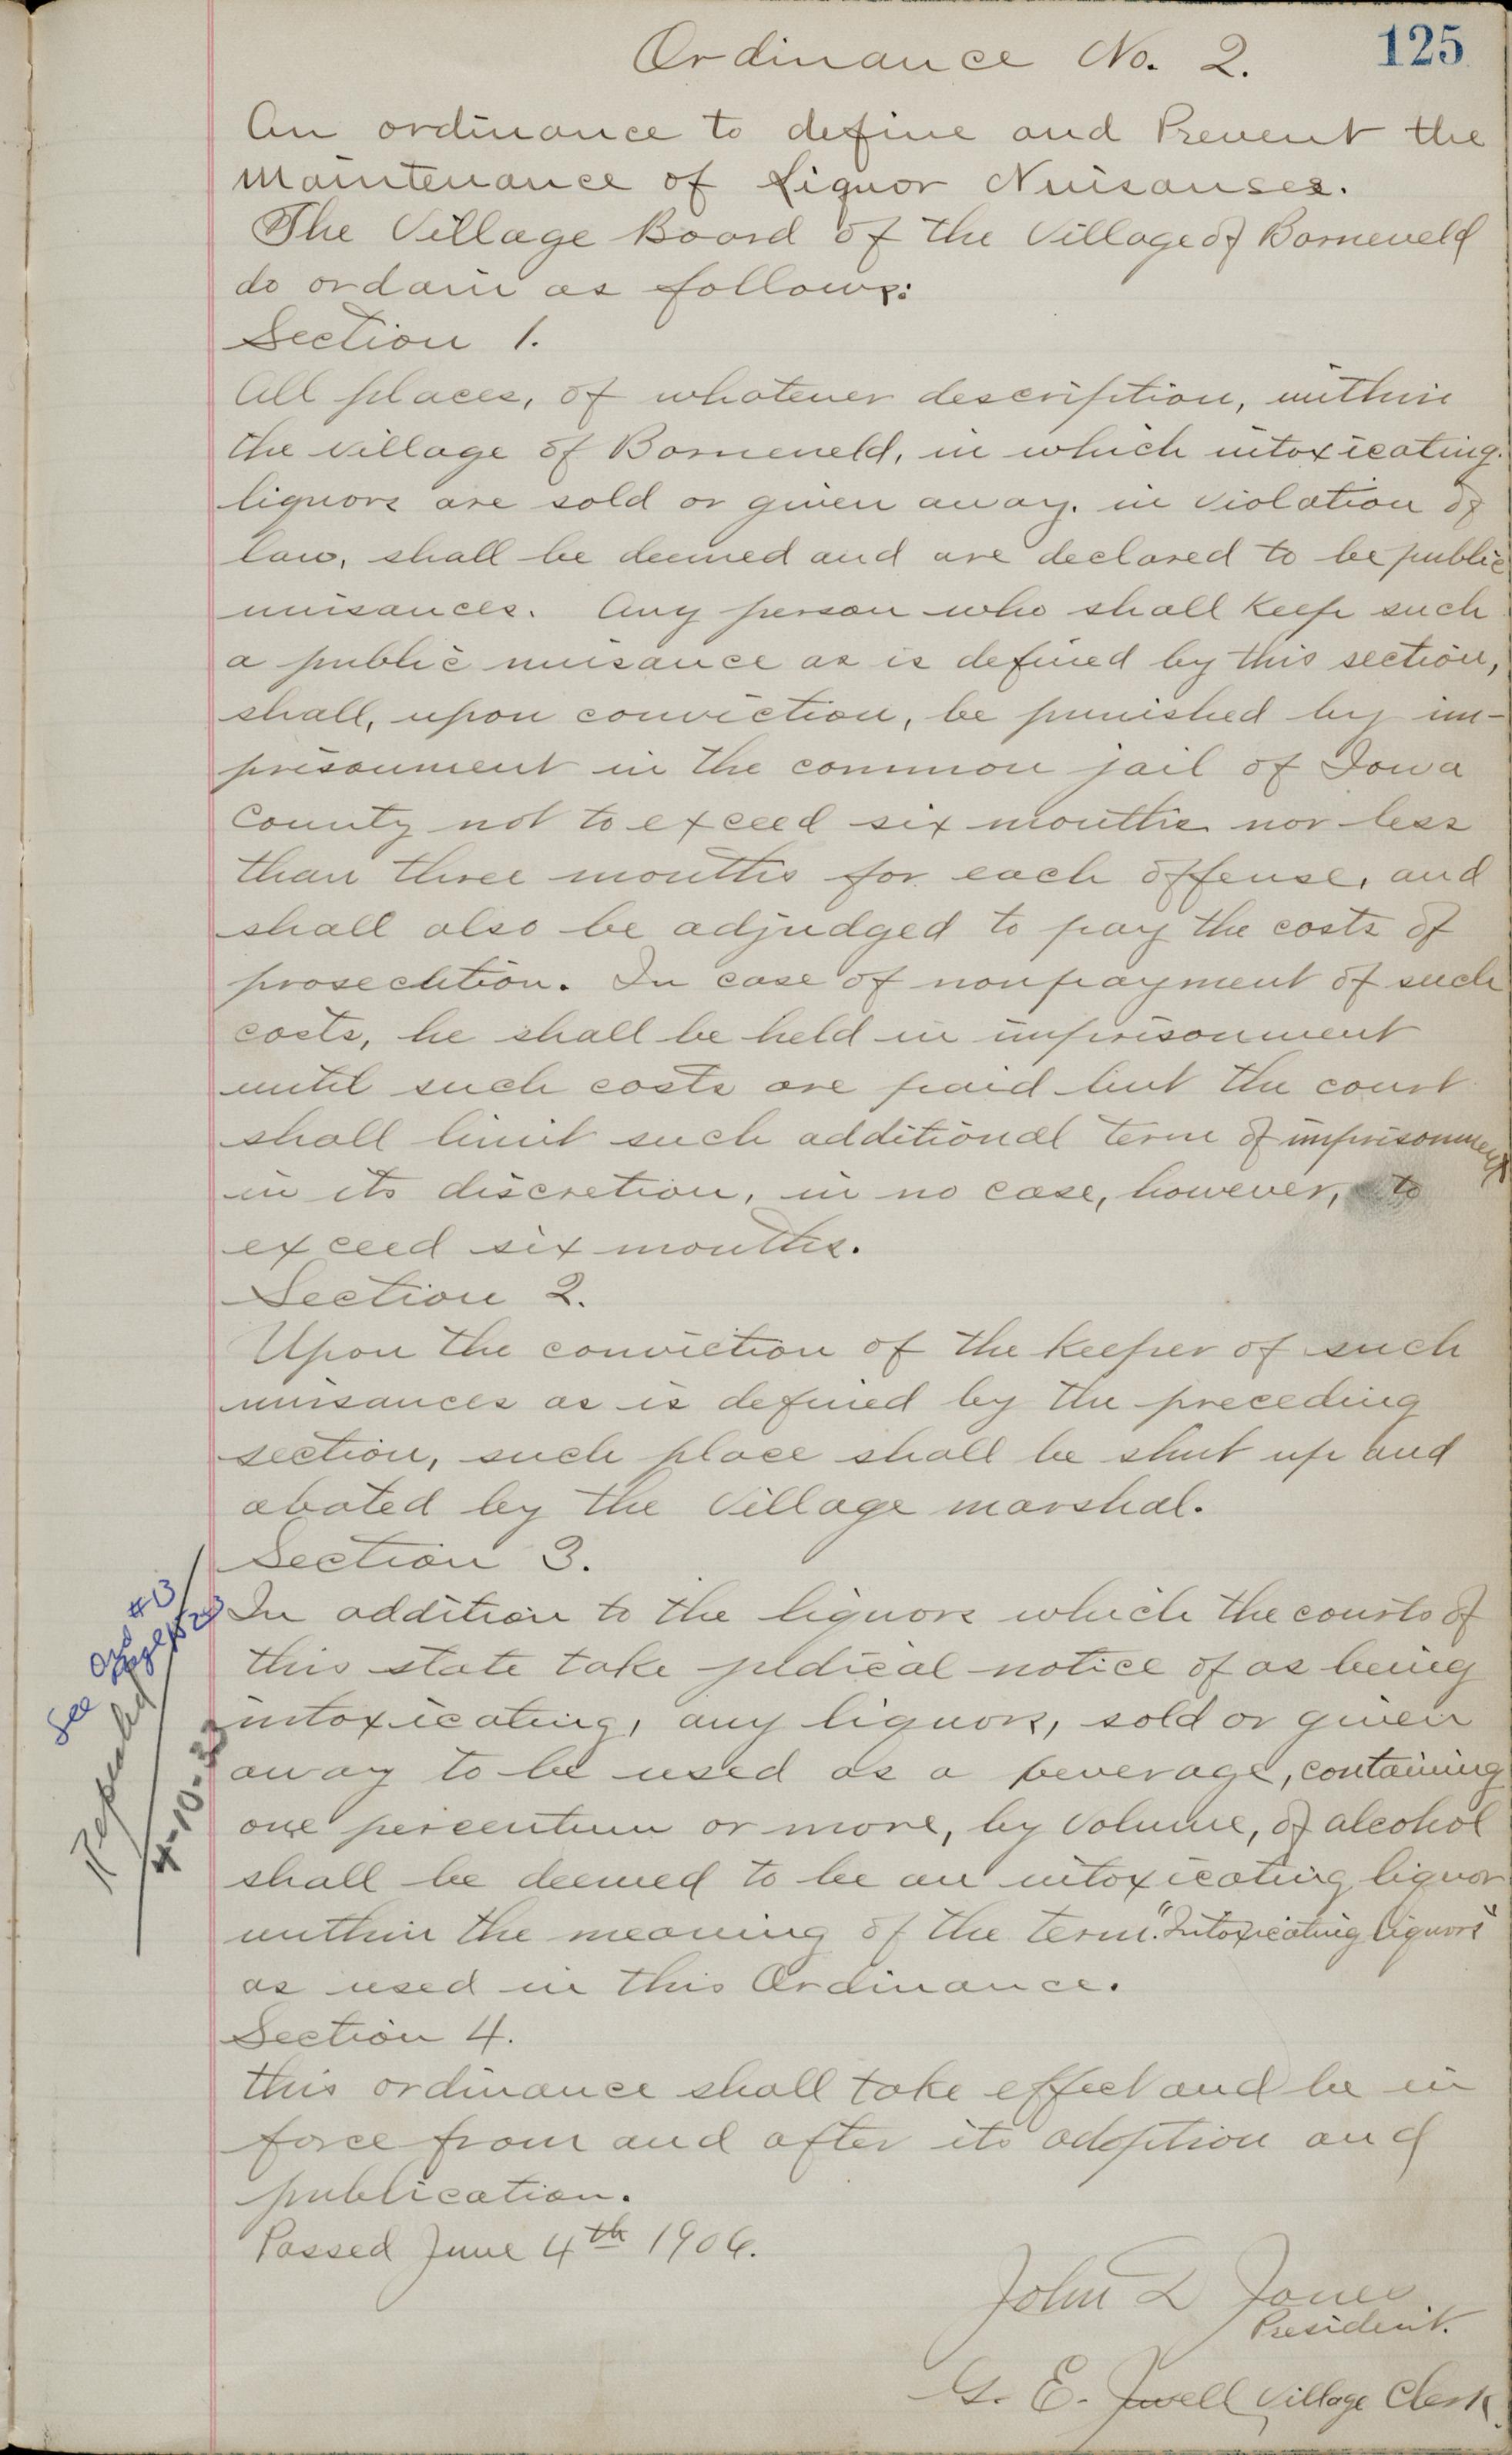 125
Ordinance No. 2.
An ordinance to define and Prevent the
Maintenance of Liquor Nuisanses.
The Village Board of the Village of Barneveld
do ordain as follows:
Section 1.
All places, of whatever description, within
the village of Barneveld, in which intoxicating
liquors are sold or given away. in violation of
law, shall be deemed and are declared to be public
nuisances. Any person who shall keep such
a public nuisance as is defined by this section,
shall, upon conviction, be punished by im-
prisonment in the common jail of Iowa
County not to exceed six months nor less
than three months for each offense, and
shall also be adjudged to pay the costs of
prosecution. In case of nonpayment of such
costs, he shall be held in imprisonment
until such costs are paid but the court
shall limit such additional term of imprisonment
in its discretion, in no case, however, to
exceed six months.
Section 2.
Upon the conviction of the keeper of such
nuisances as is defined by the preceding
section, such place shall be shut up and
abated by the Village marshal.
Section 3.
In addition to the liquors which the courts of
this state take judical notice of as being
intoxicating, any liquors, sold or given
away to be used as a beverage, containing
one percentum or more, by volume, of alcohol
shall be deemed to be an intoxicating liquor
within the meaning of the term "Intoxicating liquors"
as used in this Ordinance.
Section 4.
this ordinance shall take effect and be in
force from and after its adoption and
publication.
Passed June 4th 1906.
John L Jones
President.
G. E. Jwell Village Clerk.
See Ord #13
Repealed